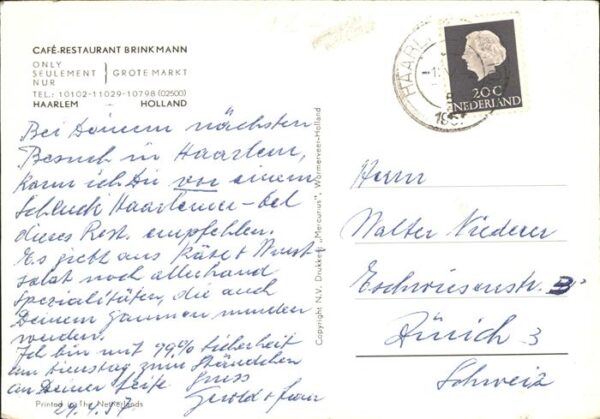 CAFÉ-RESTAURANT BRINKMANN
ONLY
SEULEMENT GROTE MARKT
NUR
TEL.: 10102-11029-10798 (02500)
HAARLEM - HOLLAND
Bei Deinem nächsten
Besuch in Haarlem,
kann ich Dir vor einem
Haarlemer-
dieses Rest. empfehlen.
Es giebt aus Käse & Wurst-
salat noch allerhand
Spezialitäten, die auch
Deinem Gaumen munden
werden.
Ich bin mit 99% Sicherheit
am Dienstag zum Ständchen
an Deiner Seite Gruss
Gerold + Frau
29.4.57
Printed in The Netherlands
Copyright N.V. Drukkerij „Mercurius", Wormerveer-Holland
HAARL
195
20C
NEDERLAND
Herrn
Walter Niederer
Eschwiesenstr.
Zürich 3
Schweiz